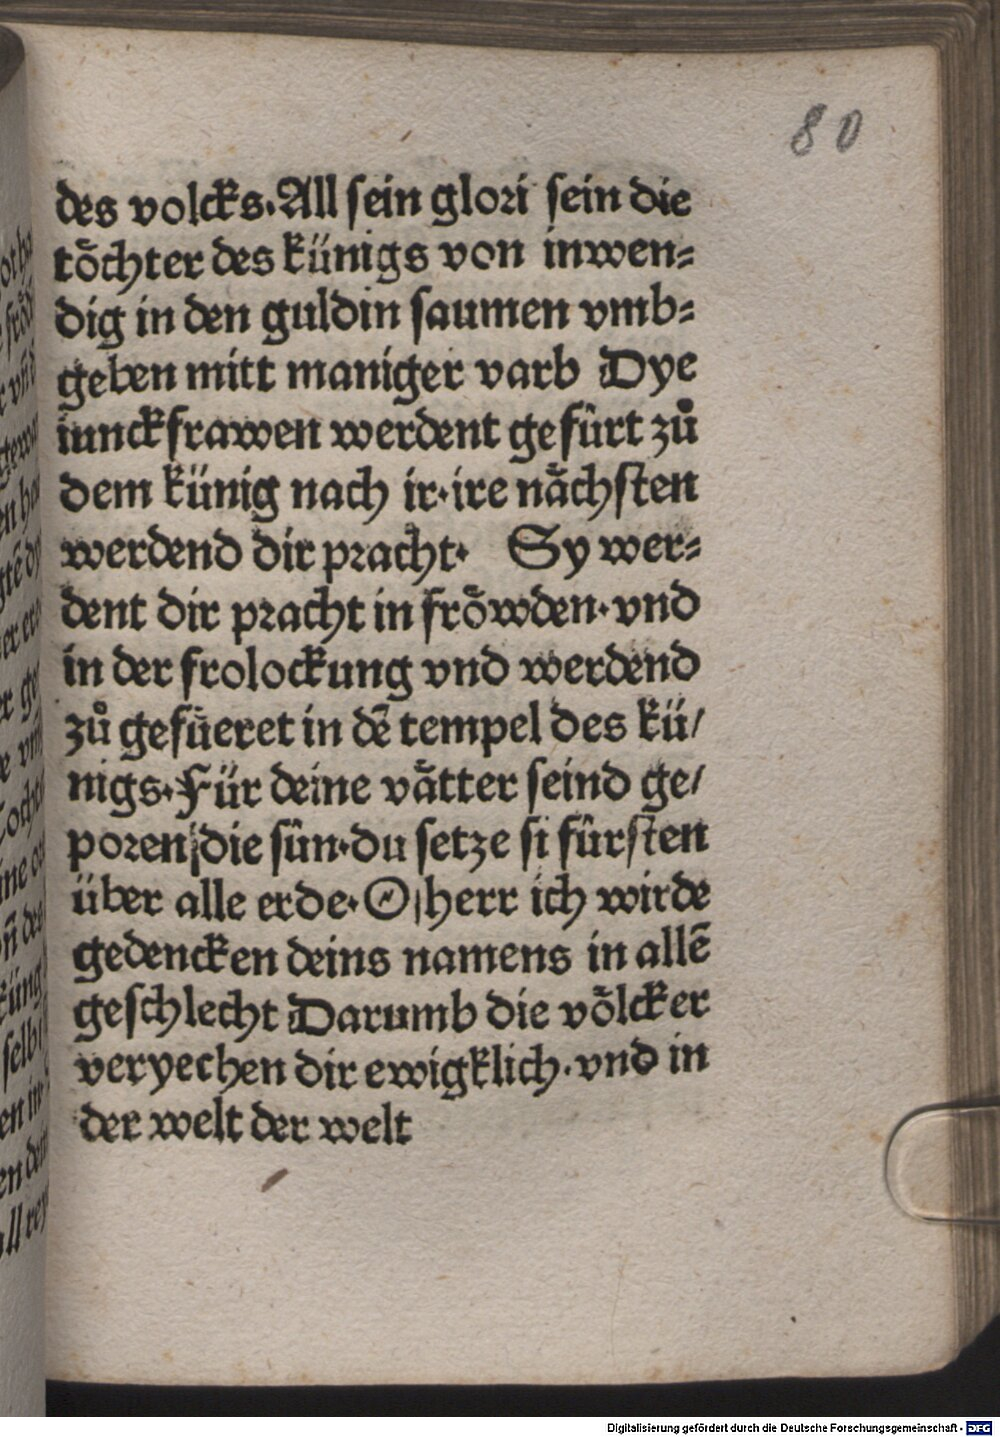 80
des volcks·All sein glori sein die
toͤchter des künigs von inwen=
dig in den guldin saumen vmb=
geben mitt maniger varb Dye
iunckfrawen werdent gefuͤrt zuͦ
dem künig nach ir·ire naͤchsten
werdend dir pracht· Sy wer=
dent dir pracht in froͤwden·vnd
in der frolockung vnd werdend
zuͦ gefuͤeret in dē tempel des kü/
nigs·Für deine vaͤtter seind ge/
poren die suͤn·du setze si fuͤrsten
über alle erde·O herr ich wirde
gedencken deins namens in allē
geschlecht Darumb die voͤlcker
veryechen dir ewigklich·vnd in
der welt der welt
Digitalisierung gefördert durch die Deutsche Forschungsgemeinschaft - DFG